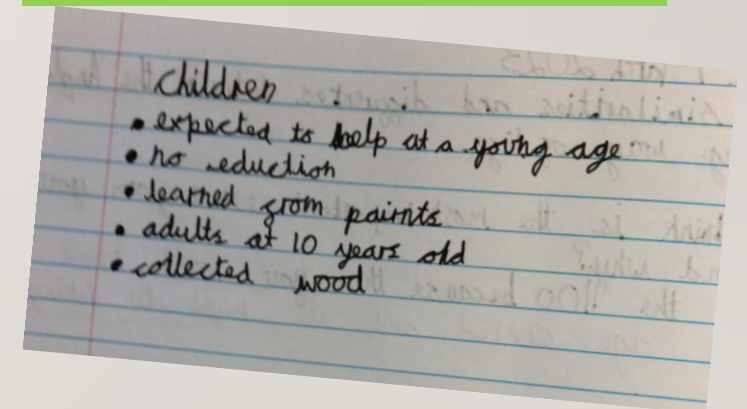 children
• expected to help at a young age
• no eduction
• learned from pairnts
• adults at 10 years old
• collected wood